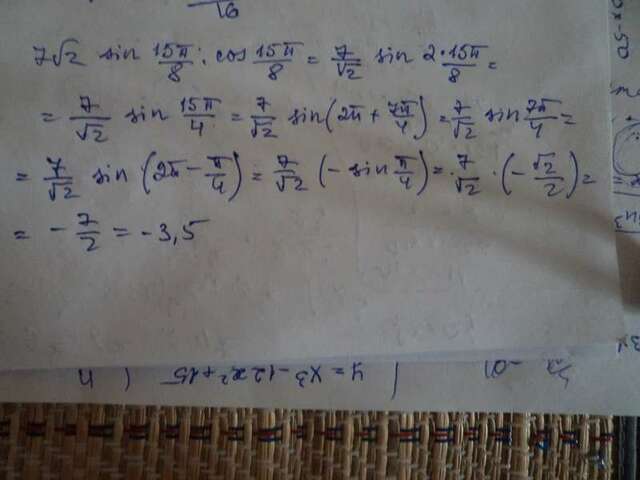 16
7√2 sin 15π/8 · cos 15π/8 = 7/√2 sin 2·15π/8 =
= 7/√2 sin 15π/4 = 7/√2 sin(2π + 7π/4) = 7/√2 sin 7π/4 =
= 7/√2 sin (2π - π/4) = 7/√2 (- sin π/4) = 7/√2 · (- √2/2) =
= - 7/2 = -3,5
y = x3 - 12x² + 15